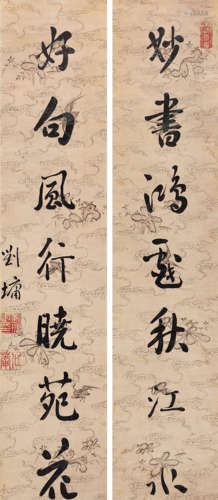 妙書鴻戲秋江水
好句風行曉苑花
劉墉